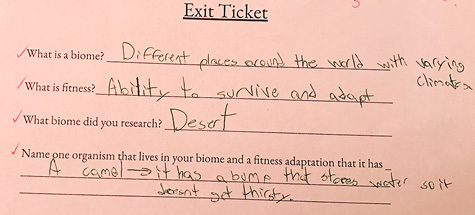 Exit Ticket
What is a biome? Different places around the world with varying
climates
What is fitness? Ability to survive and adapt
What biome did you research? Desert
Name one organism that lives in your biome and a fitness adaptation that it has
A camel → it has a bump that stores water so it
doesnt get thirsty.